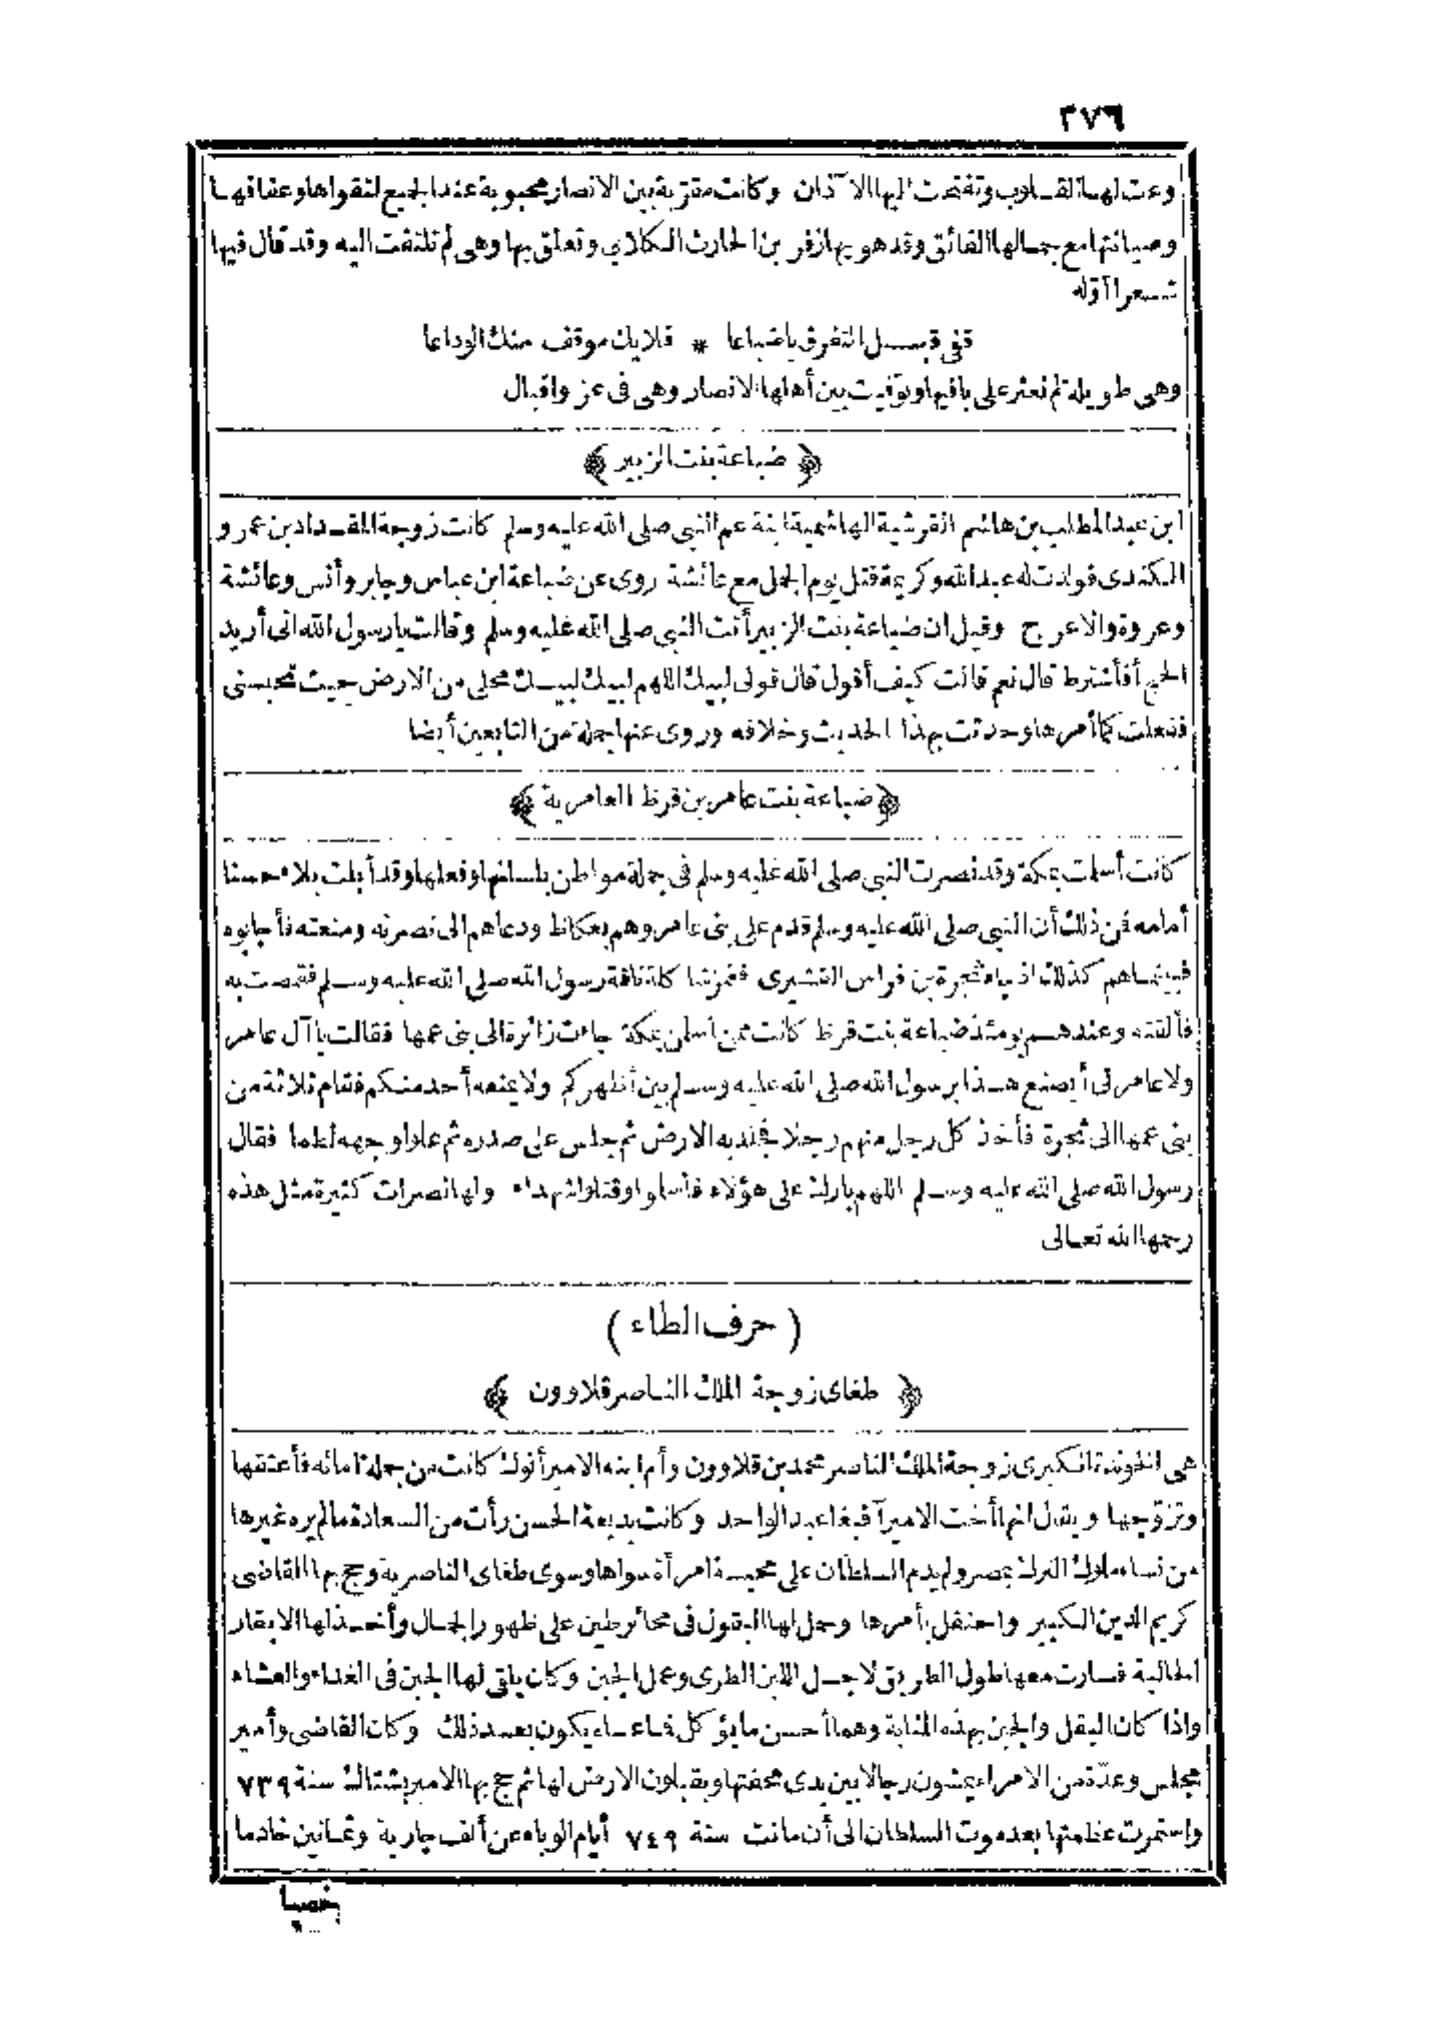 ٢٧٦
وعت لها القلوب وتفتحت اليها الآذان وكانت مقربة بين الانصار محبوبة عند الجميع لتقواها وعفافها
وصيانتها مع جمالها الفائق وقد هويها زفر بن الحارث الكلابي وتعلق بها وهى لم تلتفت اليه وقد قال فيها
شعرا أوله
قفى قبل التفرق ياضباعا * فلا يك موقف منك الوداعا
وهى طويلة لم نعثر على باقيها وتوفيت بين أهلها الانصار وهى فى عز واقبال
﴿ ضباعة بنت الزبير ﴾
ابن عبد المطلب بن هاشم القرشية الهاشمية ابنة عم النبي صلى الله عليه وسلم كانت زوجة المقداد بن عمرو
الكندى فولدت له عبد الله وكريمة قتل يوم الجمل مع عائشة روى عن ضباعة ابن عباس وجابر وأنس وعائشة
وعروة والاعرج وقيل ان ضباعة بنت الزبير أتت النبي صلى الله عليه وسلم وقالت يا رسول الله انى أريد
الحج أفأشترط قال نعم قالت كيف أقول قال قولى لبيك اللهم لبيك لبيك محلى من الارض حيث تحبسنى
ففعلت كما أمرها وحدثت بهذا الحديث وخلافه وروى عنها جملة من التابعين أيضا
﴿ ضباعة بنت عامر بن قرظ العامرية ﴾
كانت أسلمت بمكة وقد نصرت النبي صلى الله عليه وسلم فى جملة مواطن بلسانها وفعلها وقد أبلت بلاء حسنا
أمامه فمن ذلك أن النبي صلى الله عليه وسلم قدم على بنى عامر وهم بعكاظ ودعاهم الى نصرته ومنعته فأجابوه
فبينما هم كذلك اذ جاء ثجرة بن فراس القشيرى فغمز شا كلة ناقة رسول الله صلى الله عليه وسلم فقمصت به
فألقته وعندهم يومئذ ضباعة بنت قرظ كانت ممن أسلمن بمكة جاءت زائرة الى بنى عمها فقالت يا آل عامر
ولا عامر لى أيصنع هذا برسول الله صلى الله عليه وسلم بين أظهركم ولا يمنعه أحد منكم فقام ثلاثة من
بنى عمها الى ثجرة فأخذ كل رجل منهم رجلا فجلد به الارض ثم جلس على صدره ثم علوا وجهه لطما فقال
رسول الله صلى الله عليه وسلم اللهم بارك على هؤلاء فأسلموا وقتلوا شهداء ولها نصرات كثيرة مثل هذه
رحمها الله تعالى
( حرف الطاء )
﴿ طغاى زوجة الملك الناصر قلاوون ﴾
هى الخوندة الكبرى زوجة الملك الناصر محمد بن قلاوون وأم ابنه الامير أنوك كانت من جملة امائه فأعتقها
وتزوجها ويقال انها أخت الامير آقبغا عبد الواحد وكانت بديعة الحسن رأت من السعادة مالم يره غيرها
من نساء ملوك الترك بمصر ولم يدم السلطان على محبة امرأة سواها وسوى طغاى الناصرية وحج بها القاضى
كريم الدين الكبير واحتفل بأمرها وحمل لها البقول فى محائر طين على ظهور الجمال وأخذ لها الابقار
الحالبة فسارت معها طول الطريق لاجل اللبن الطرى وعمل الجبن وكان يلقى لها الجبن فى الغداء والعشاء
واذا كان البقل والجبن بهذه المثابة وهما أحسن ما يؤكل فما عساه يكون بعد ذلك وكان القاضى وأمير
مجلس وعدة من الامراء يمشون رجالا بين يدى محفتها ويقبلون الارض لها ثم حج بها الامير بشتاك سنة ٧٣٩
واستمرت عظمتها بعد موت السلطان الى أن ماتت سنة ٧٤٩ أيام الوباء عن ألف جارية وثمانين خادما
خصيا